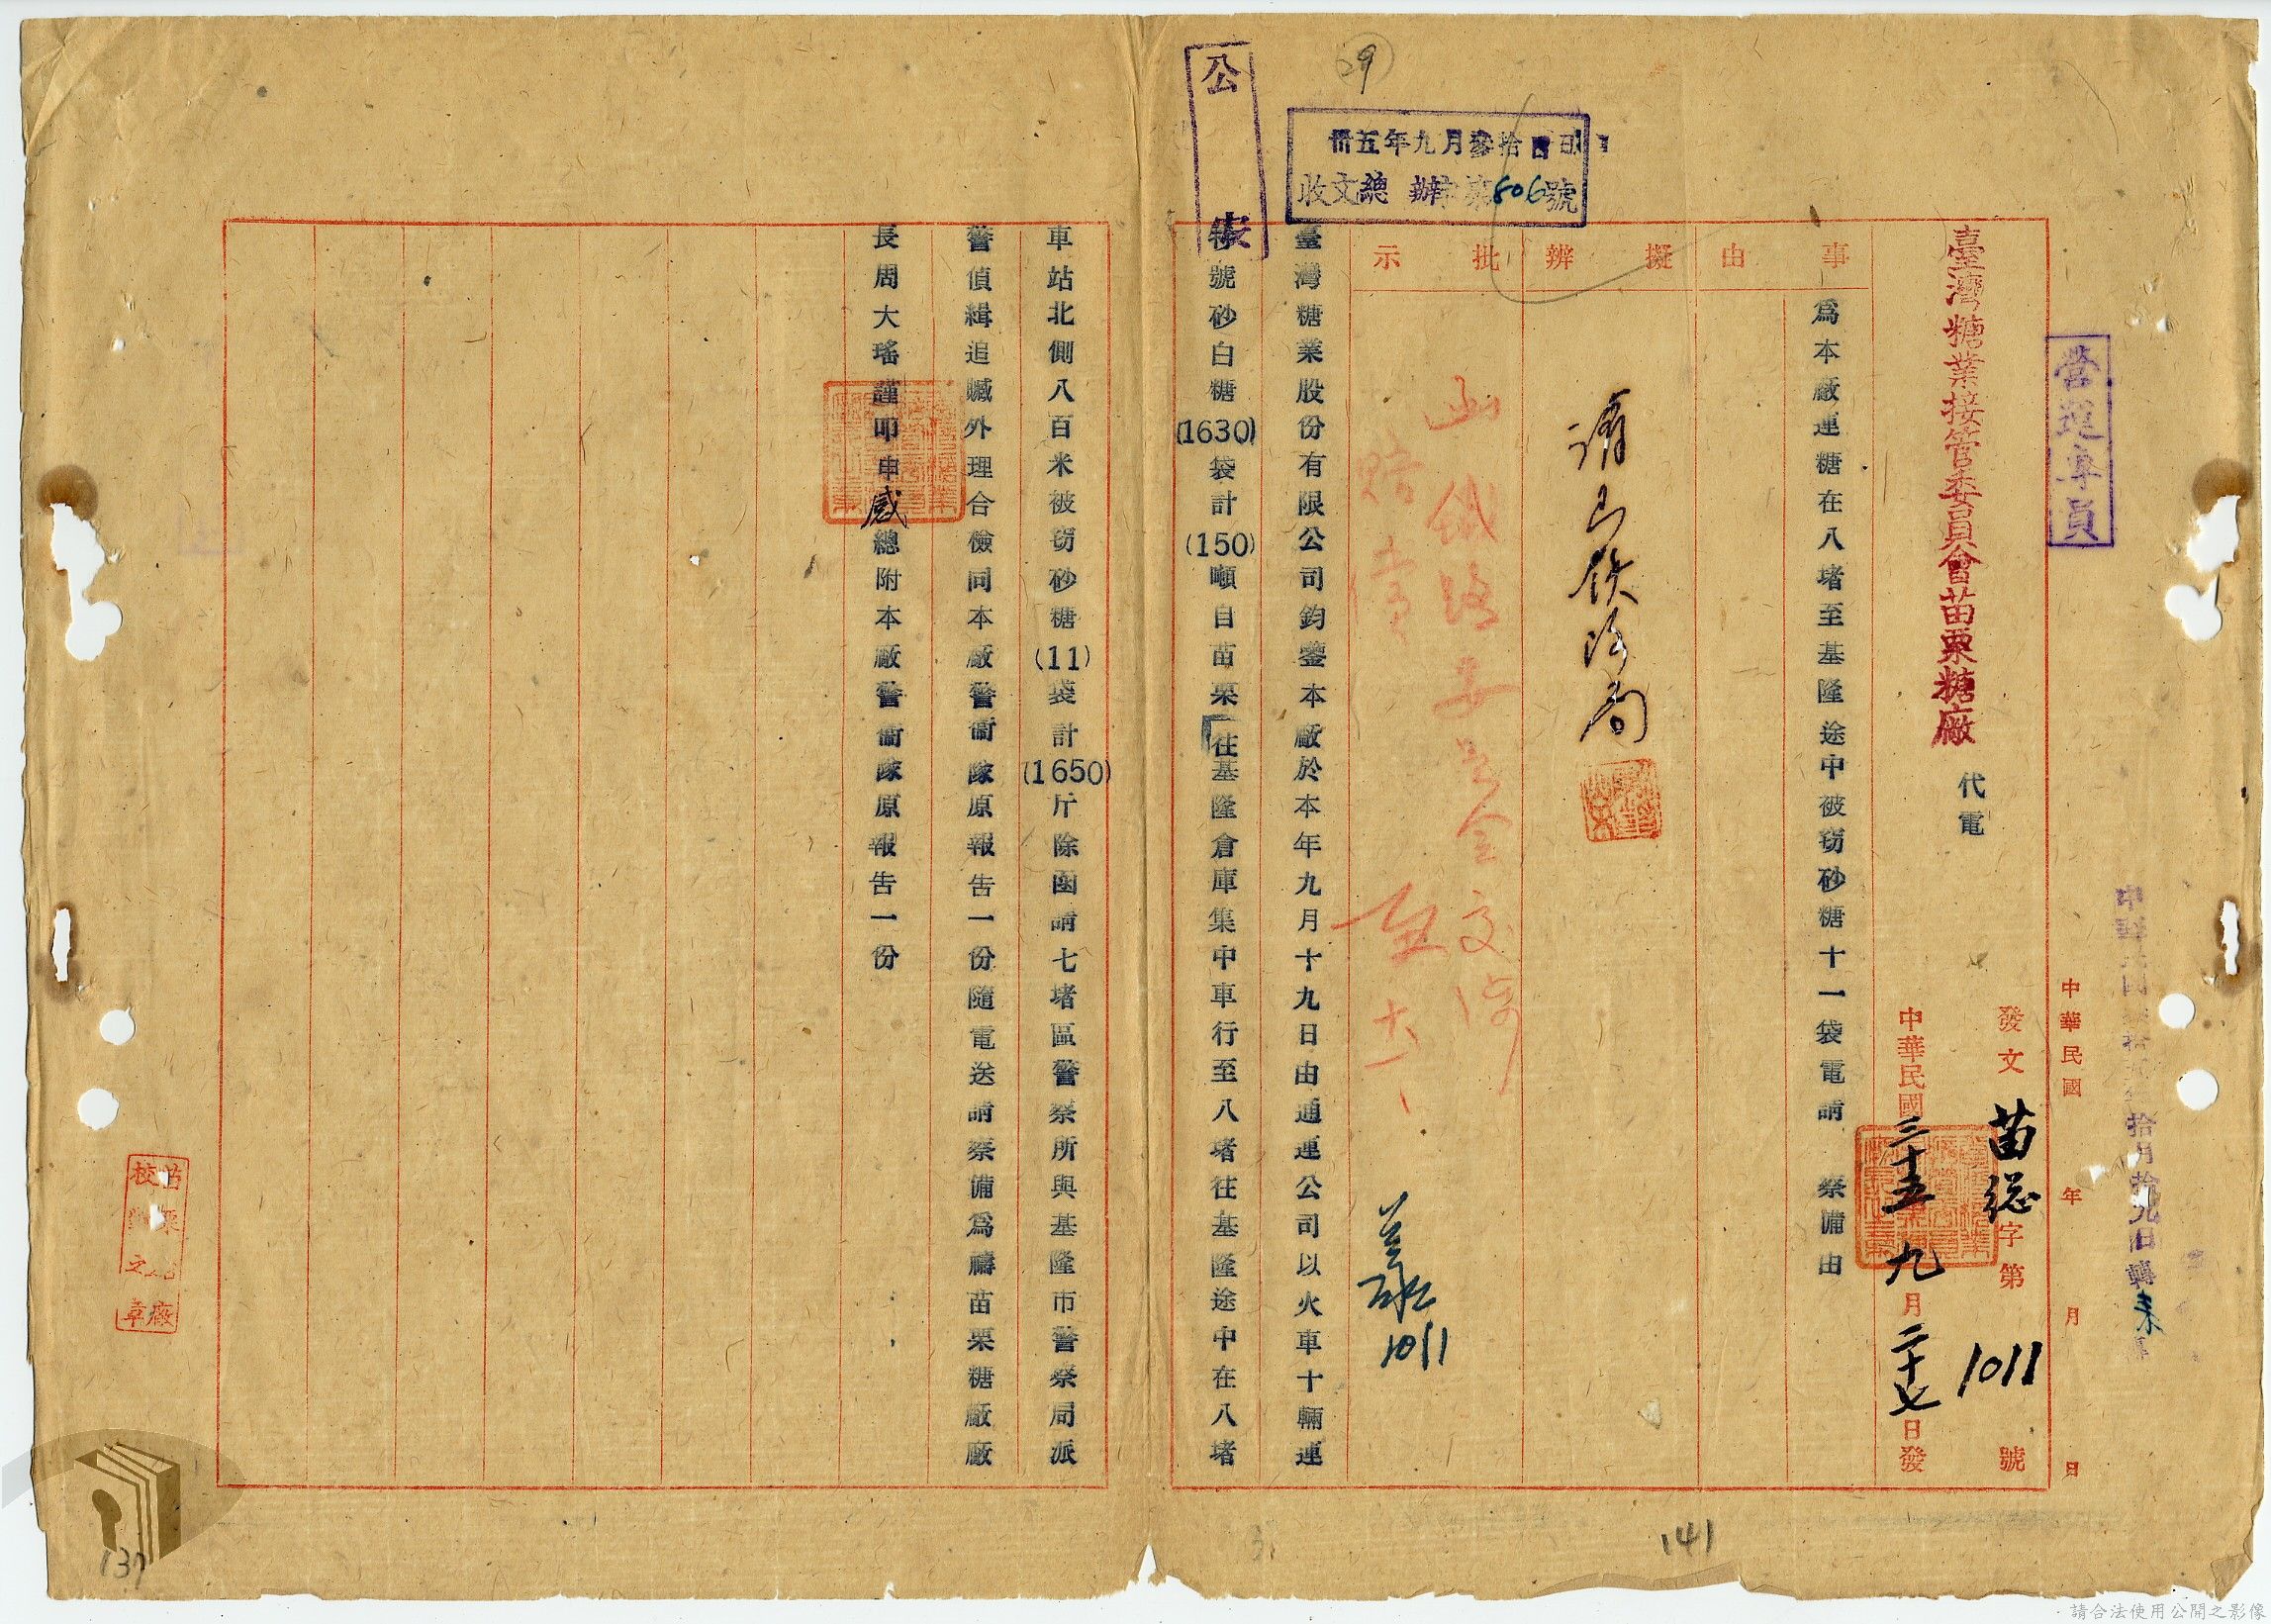 29
公
卅五年九月參拾日
收文總辦字第806號
營運專員
臺灣糖業接管委員會苗栗糖廠
代電
發文苗總字第1011號
中華民國三十五年九月二十七日發
中華民國 年 月 日
拾月拾九日
事由
為本廠運糖在八堵至基隆途中被窃砂糖十一袋電請 察備由
擬辦
批示
函鐵路
賠償
1011
臺灣糖業股份有限公司鈞鑒本廠於本年九月十九日由通運公司以火車十輛運
號砂白糖(1630)袋計(150)噸自苗栗往基隆倉庫集中車行至八堵往基隆途中在八堵
車站北側八百米被窃砂糖(11)袋計(1650)斤除函請七堵區警察所與基隆市警察局派
警偵緝追贓外理合檢同本廠警衞隊原報告一份隨電送請察備為禱苗栗糖廠廠
長周大瑤謹叩申感總附本廠警衞隊原報告一份
苗栗糖廠
校對之章
141
137
請合法使用公開之影像